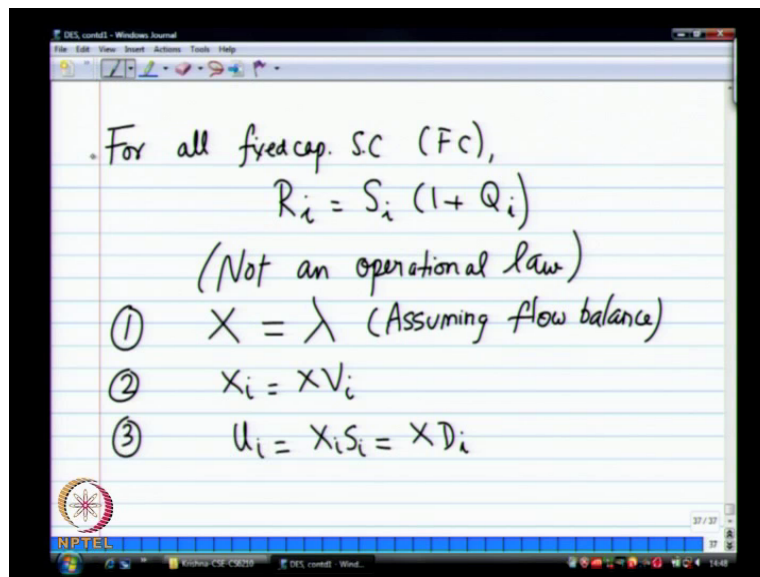 DES, contd1 - Windows Journal
File Edit View Insert Actions Tools Help
For all fixed cap. S.C (FC),
Ri = Si (1 + Qi)
(Not an operational law)
① X = λ (Assuming flow balance)
② Xi = XVi
③ Ui = XiSi = XDi
37 / 37
37
NPTEL
Krishna-CSE-CS6210
DES, contd1 - Wind...
14:48